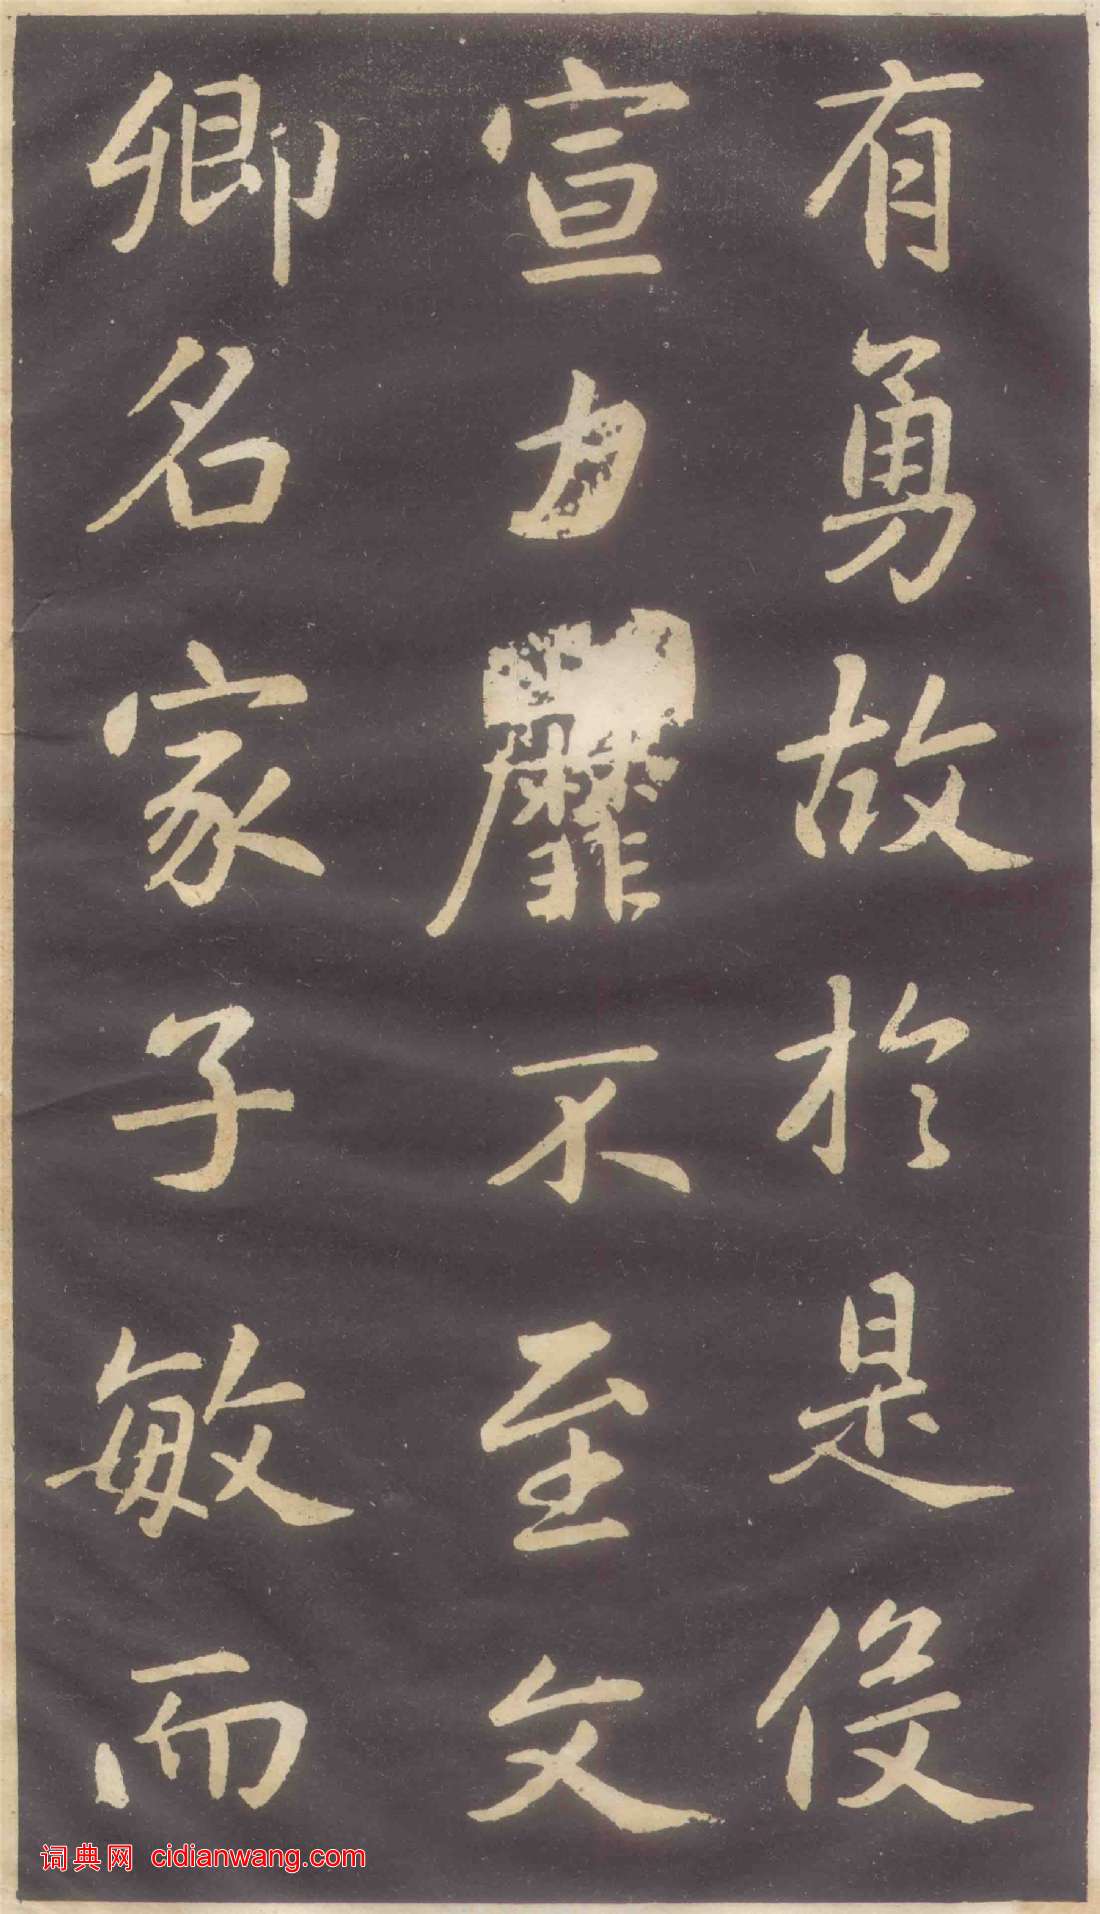 有勇故於是俊
宣力靡不至文
卿名家子敏而
词典网 cidianwang.com